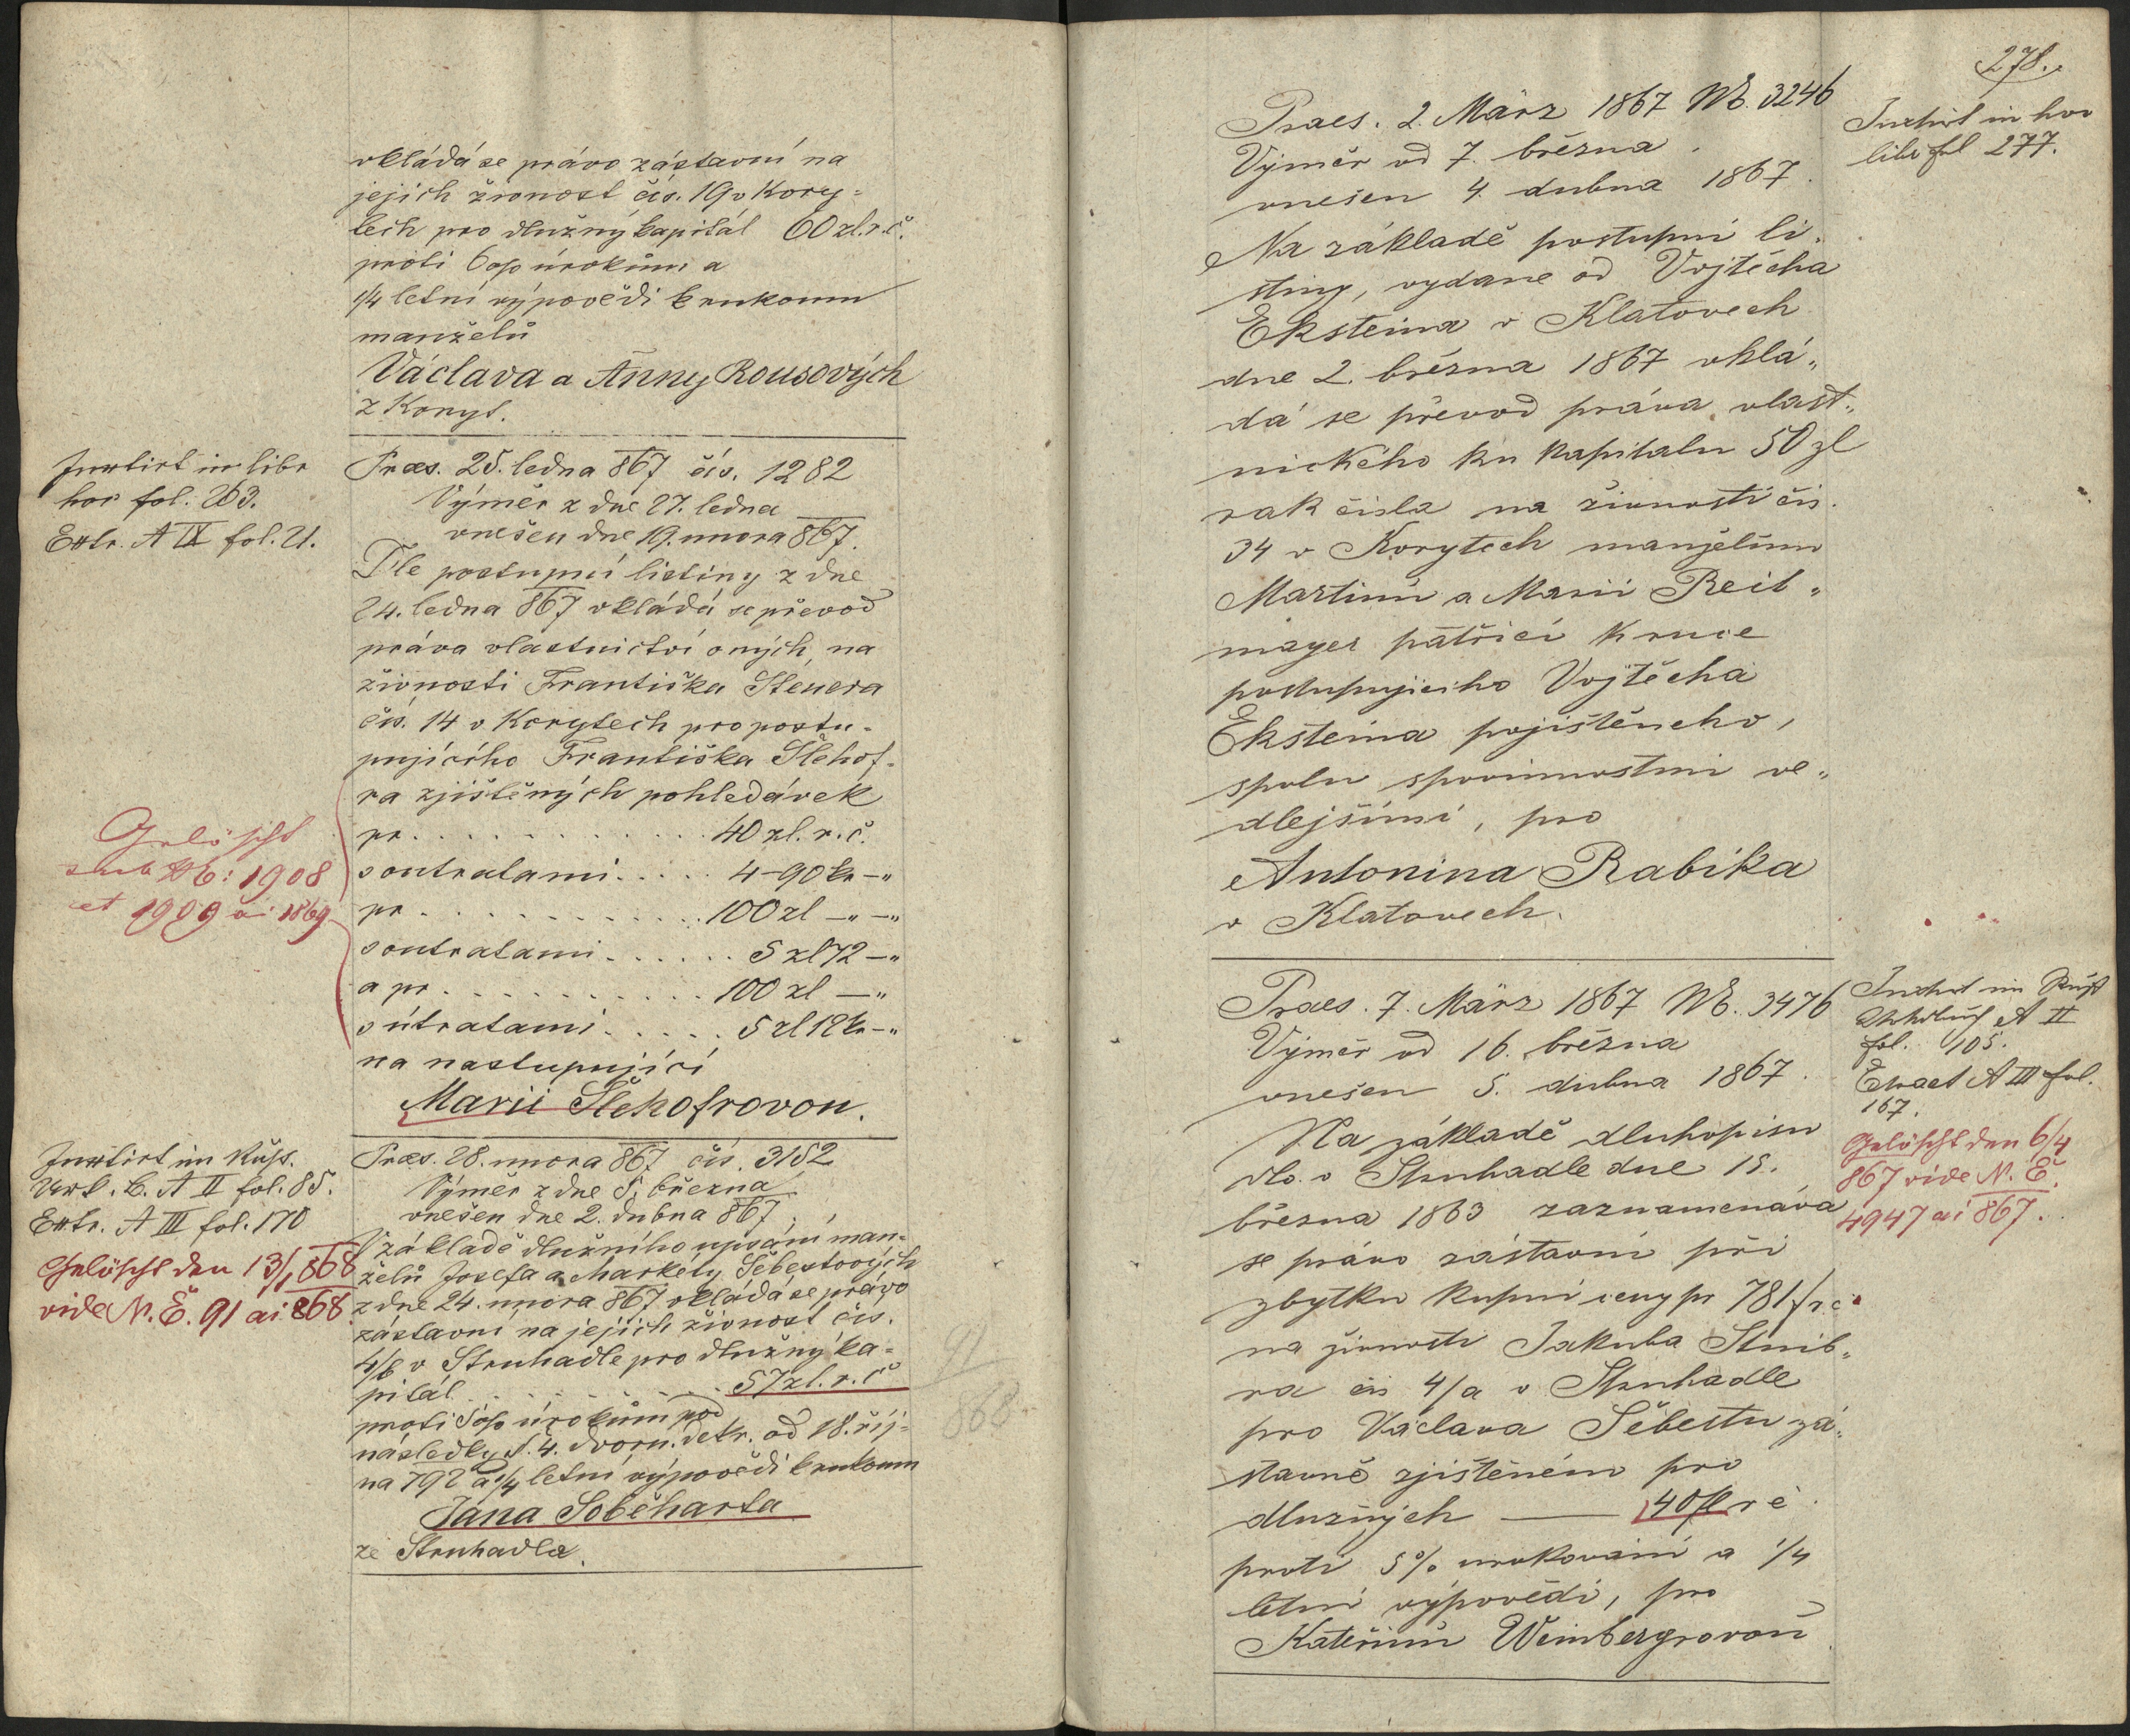 vkládá se právo zástavní na
jejich živnost čís. 19 v Kory=
tech pro dlužný kapitál 60 zl. r. č.
proti 6 o/o úrokům a
1/4 letní výpovědi k rukoum
manželů
Václava a Anny Rousových
z Koryt.
Instirt in libr
hoc fol. 263.
Extr. A IX fol. 21.
Praes. 25. ledna 867 čís. 1282
Výměr z dne 27. ledna
vnešen dne 19. unora 867.
Dle postupní listiny z dne
24. ledna 867 vkládá se převod
práva vlastnictví oných, na
živnosti Františka Steuera
čís. 14 v Korytech pro postu=
pujícího Františka Šlehof=
ra zjištěných pohledávek
pr. . . . . . . . . . . . 40 zl. r. č.
soutratami . . . . . 4-90 kr -"
pr . . . . . . . . . . . . 100 zl -"-"
soutratami . . . . . . 5 zl 72 -"
a pr . . . . . . . . . . . 100 zl -"
s útratami . . . . . 5 zl 12 kr -"
na nastupující
Marii Šlehofrovou.
Gelöscht
sub Nẽ: 1908
et 1909 ai 1869
Instirt im Kúps.
Urk. B. A II fol. 85.
Extr. A III fol. 170
Gelöscht den 13/1 868
vide N. Ě. 91 ai 868
Praes. 28. unora 867 čís. 3152
Výměr z dne 5. března
vnešen dne 2. dubna 867.
V základě dlužního upsání man=
želů Josefa a Markéty Šebestových
z dne 24. unora 867 vkládá se právo
zástavní na jejich živnost čís.
4/b v Struhadle pro dlužný ka=
pitál . . . . . . . . . . . 57 zl. r. č
proti 5 o/o úrokům pod
následky §. 4. dvorn. dekr. od 18. říj=
na 792 a 1/4 letní výpovědi k rukoum
Jana Soběharta
ze Struhadla.
91
868
278.
Praes. 2. März 1867 Nẽ. 3246
Výměr od 7. března
vnešen 4. dubna 1867.
Inxtirt in hoc
libr fol 277.
Na základě postupní li„
stiny, vydane od Vojtěcha
Eksteina v Klatovech
dne 2. března 1867 vklá„
dá se převod práva vlast„
nického ku kapitalu 50 zl
rak čisla na živnosti čis.
34 v Korytech manželům
Martinu a Marii Reit„
mayer patřicí k ruce
postupujiciho Vojtěcha
Eksteina pojištěneho,
spolu spovinnostmi ve„
dlejšími, pro
Antonina Rabika
v Klatovech.
Praes. 7. März 1867 Nẽ. 3476
Výměr od 16. března
vnešen 5. dubna 1867.
A II
fol. 105.
Extract A III fol.
167.
Gelöscht den 6/4
867 vide N. Ě.
4947 ai 867.
Na základě dluhopisu
dto. v Struhadle dne 15.
března 1863 zaznamenáva
se právo zástavní při
zbytku kupní ceny pr 781 f r. č
na živnosti Jakuba Stuib„
ra čis 4/a v Struhadle
pro Václava Šebestu zá„
stavně zjištěném pro
dlužných — 40 fl r č.
proti 5% urokovaní a 1/4
letní výpovědi, pro
Kateřinu Weinbergrovou